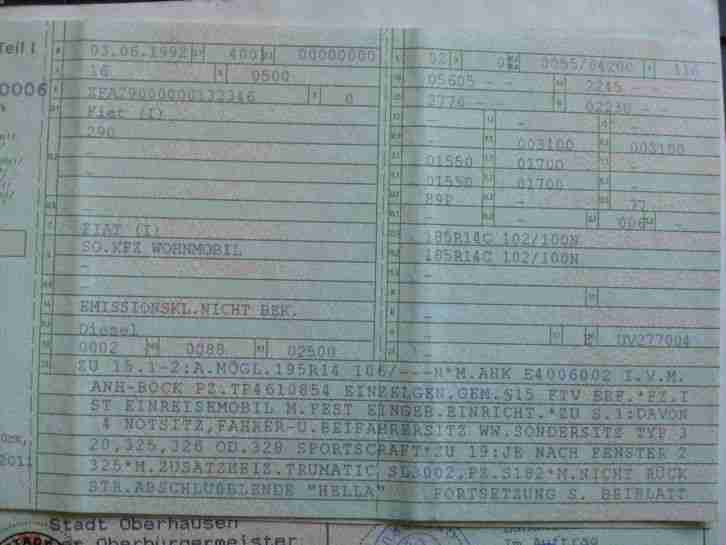 Teil I
0006
03.06.1992 400 00000000
16 0500
ZFA29000000132346 0
Fiat (I)
290
-
-
-
FIAT (I)
SO.KFZ WOHNMOBIL
-
-
EMISSIONSKL.NICHT BEK.
Diesel
0002 0088 02500
02 0055/04200 116
05605 - - 2245 - -
2770 - - 02230 - -
- - -
- 003100 003100
01550 01700 -
01550 01700 -
89P - 77
- - 006 -
185R14C 102/100N
185R14C 102/100N
-
- -
-
- - UV277004
ZU 15.1-2:A.MÖGL.195R14 106/---N*M.AHK E4006002 I.V.M.
ANH-BOCK PZ.TP4610854 EINZELGEN.GEM.§15 FTV BRF.*FZ.I
ST EINREISEMOBIL M.FEST EINGEB.EINRICHT.*ZU S.1:DAVON
4 NOTSITZ,FAHRER-U.BEIFAHRERSITZ WW.SONDERSITZ TYP 3
20,325,326 OD.328 SPORTSCRAFT*ZU 19:JE NACH FENSTER 2
325*M.ZUSATZHEIZ.TRUMATIC SL3002,PZ.S182*M.NICHT RÜCK
STR.ABSCHLUßBLENDE "HELLA" FORTSETZUNG S. BEIBLATT
201
Stadt Oberhausen
Oberbürgermeister
Im Auftrag